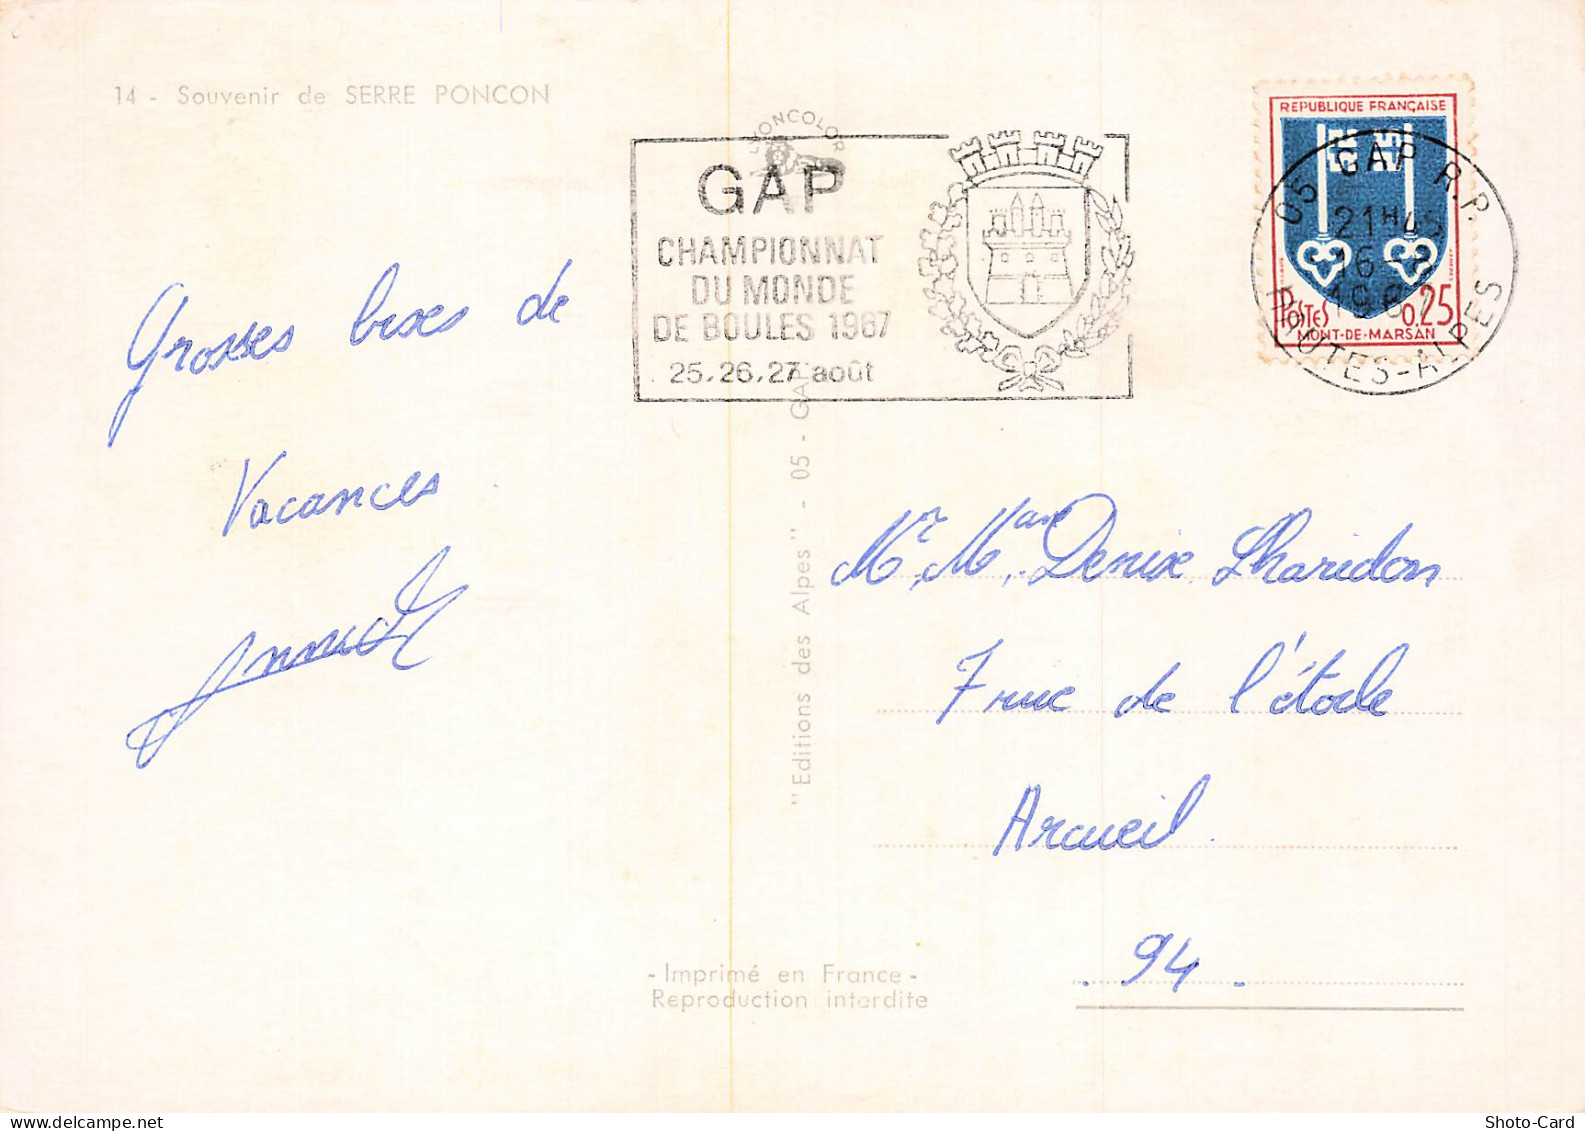 14 - Souvenir de SERRE PONCON
LYONCOLOR
GAP
CHAMPIONNAT
DU MONDE
DE BOULES 1967
25.26.27 août
REPUBLIQUE FRANÇAISE
POSTES 0,25
MONT-DE-MARSAN
05 GAP R.P.
21H45
16-8
HAUTES-ALPES
Grosses bises de
Vacances
"Editions des Alpes" - 05 - GAP
Mr, Mme, Denise Lharidon
7 rue de l'étoile
Arcueil.
. 94 .
- Imprimé en France -
Reproduction interdite
Shoto-Card
delcampe.net